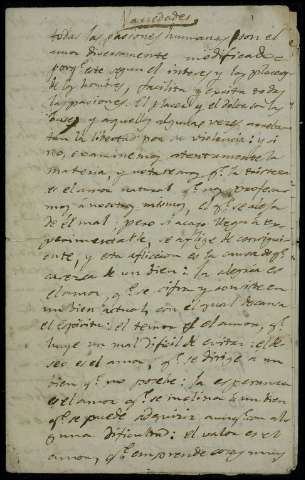 Variedades
todas las pasiones humanas son el
amor diversamente modificado
porq.e este segun el interes y los placeres
de los hombres, facilita y excita todas
las pasiones. El placer y el dolor son las
bases y aquellos algunas veces arrebatan
tan la libertad por su violencia: y si
no, examinemos atentamente la
materia, y notaremos q.e la tristeza
es el amor natural q.e nos profesa-
mos a nosotros mismos, el q.e se aleja
de el mal, pero si acaso llega a ex-
perimentarle, se aflige de consiguien-
te, y esta afliccion es la causa de q.e
carezca de un bien: la alegria es
el amor, q.e se cifra y consiste en
un bien actual, con el qual descansa
el espiritu: el temor es el amor, q.e
huye un mal dificil de evitar: el de-
seo es el amor, q.e se dirige a un
bien q.e no posee: la esperanza
es el amor q.e se inclina a un bien
q.e se puede adquirir aunq.e con al-
guna dificultad: el valor es el
amor, q.e emprende cosas muy